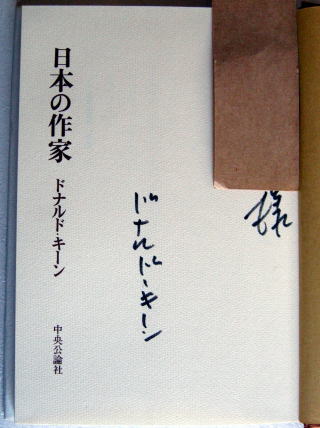 様
ドナルド・キーン
日本の作家
ドナルド・キーン
中央公論社